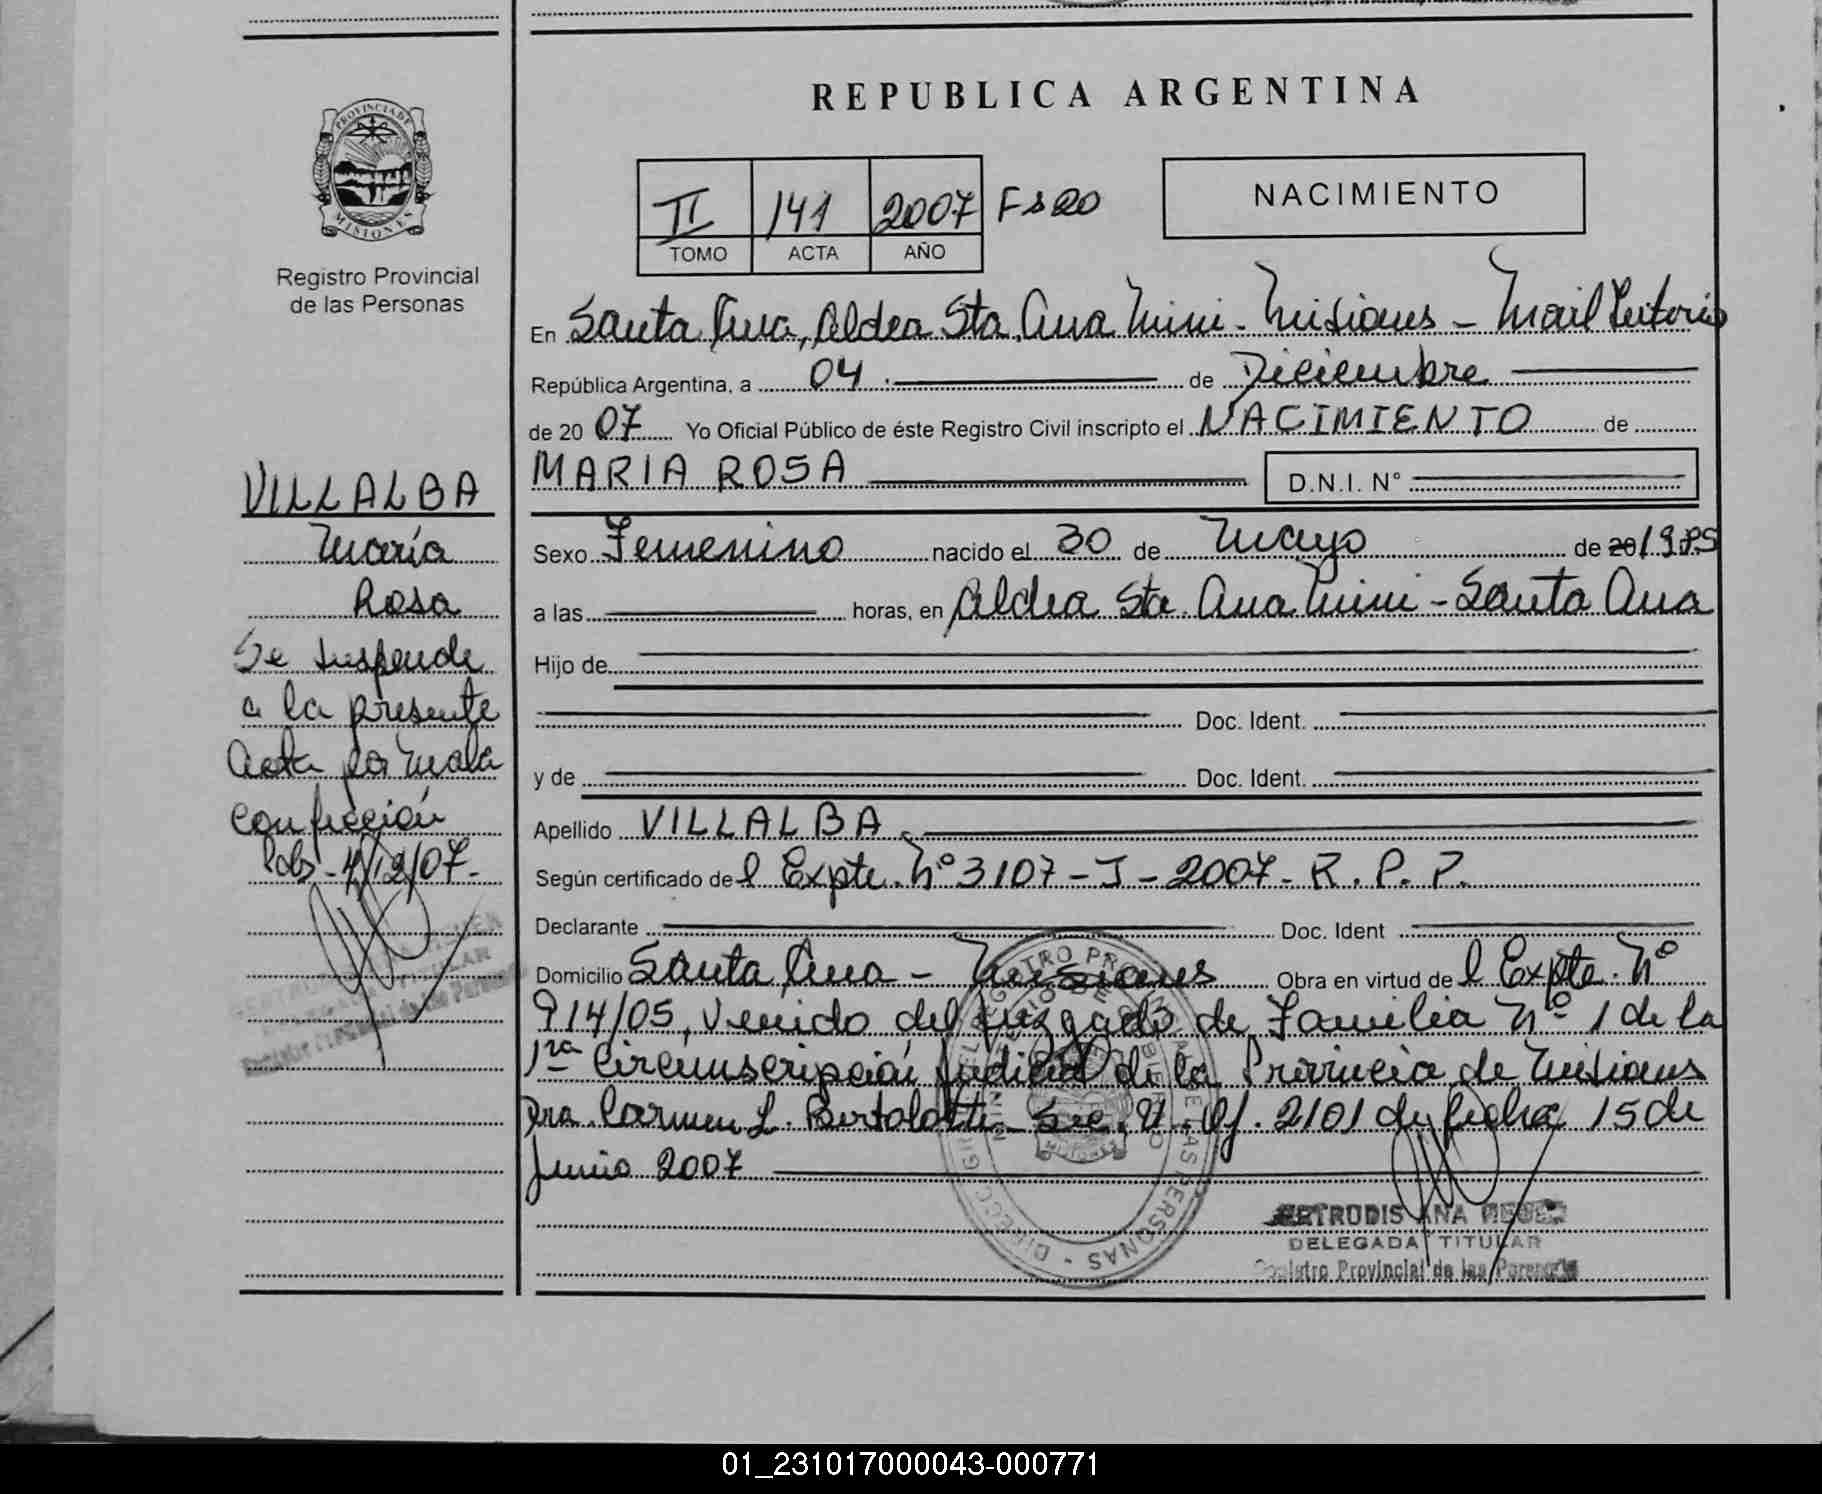 REPUBLICA ARGENTINA
PROVINCIA DE
MISIONES
Registro Provincial
de las Personas
II 141 2007 Fs 20
TOMO ACTA AÑO
NACIMIENTO
En Santa Ana, Aldea Sta. Ana Mini - Misiones -
República Argentina, a 04 de Diciembre
de 2007 Yo Oficial Público de éste Registro Civil inscripto el NACIMIENTO de
MARIA ROSA D.N.I. N°
Sexo Femenino nacido el 30 de Mayo de 20/1985
a las horas, en Aldea Sta. Ana Mini - Santa Ana
Hijo de
Doc. Ident.
y de Doc. Ident.
Apellido VILLALBA
Según certificado del Expte. N° 3107 - J - 2007 - R. P. P.
Declarante Doc. Ident
Domicilio Santa Ana - Misiones Obra en virtud del Expte. N°
914/05, Venido del Juzgado de Familia N° 1 de la
1ra Circunscripción Judicial de la Provincia de Misiones
Dra. Carmen L. Bertolotti - Sec. Of. 2101 de fecha 15 de
Junio 2007
VILLALBA
María
Rosa
Se suspende
a la presente
Acta por mala
confección
4/12/07-
TITULAR
ANA
DELEGADA TITULAR
Registro Provincial de las Personas
01_231017000043-000771